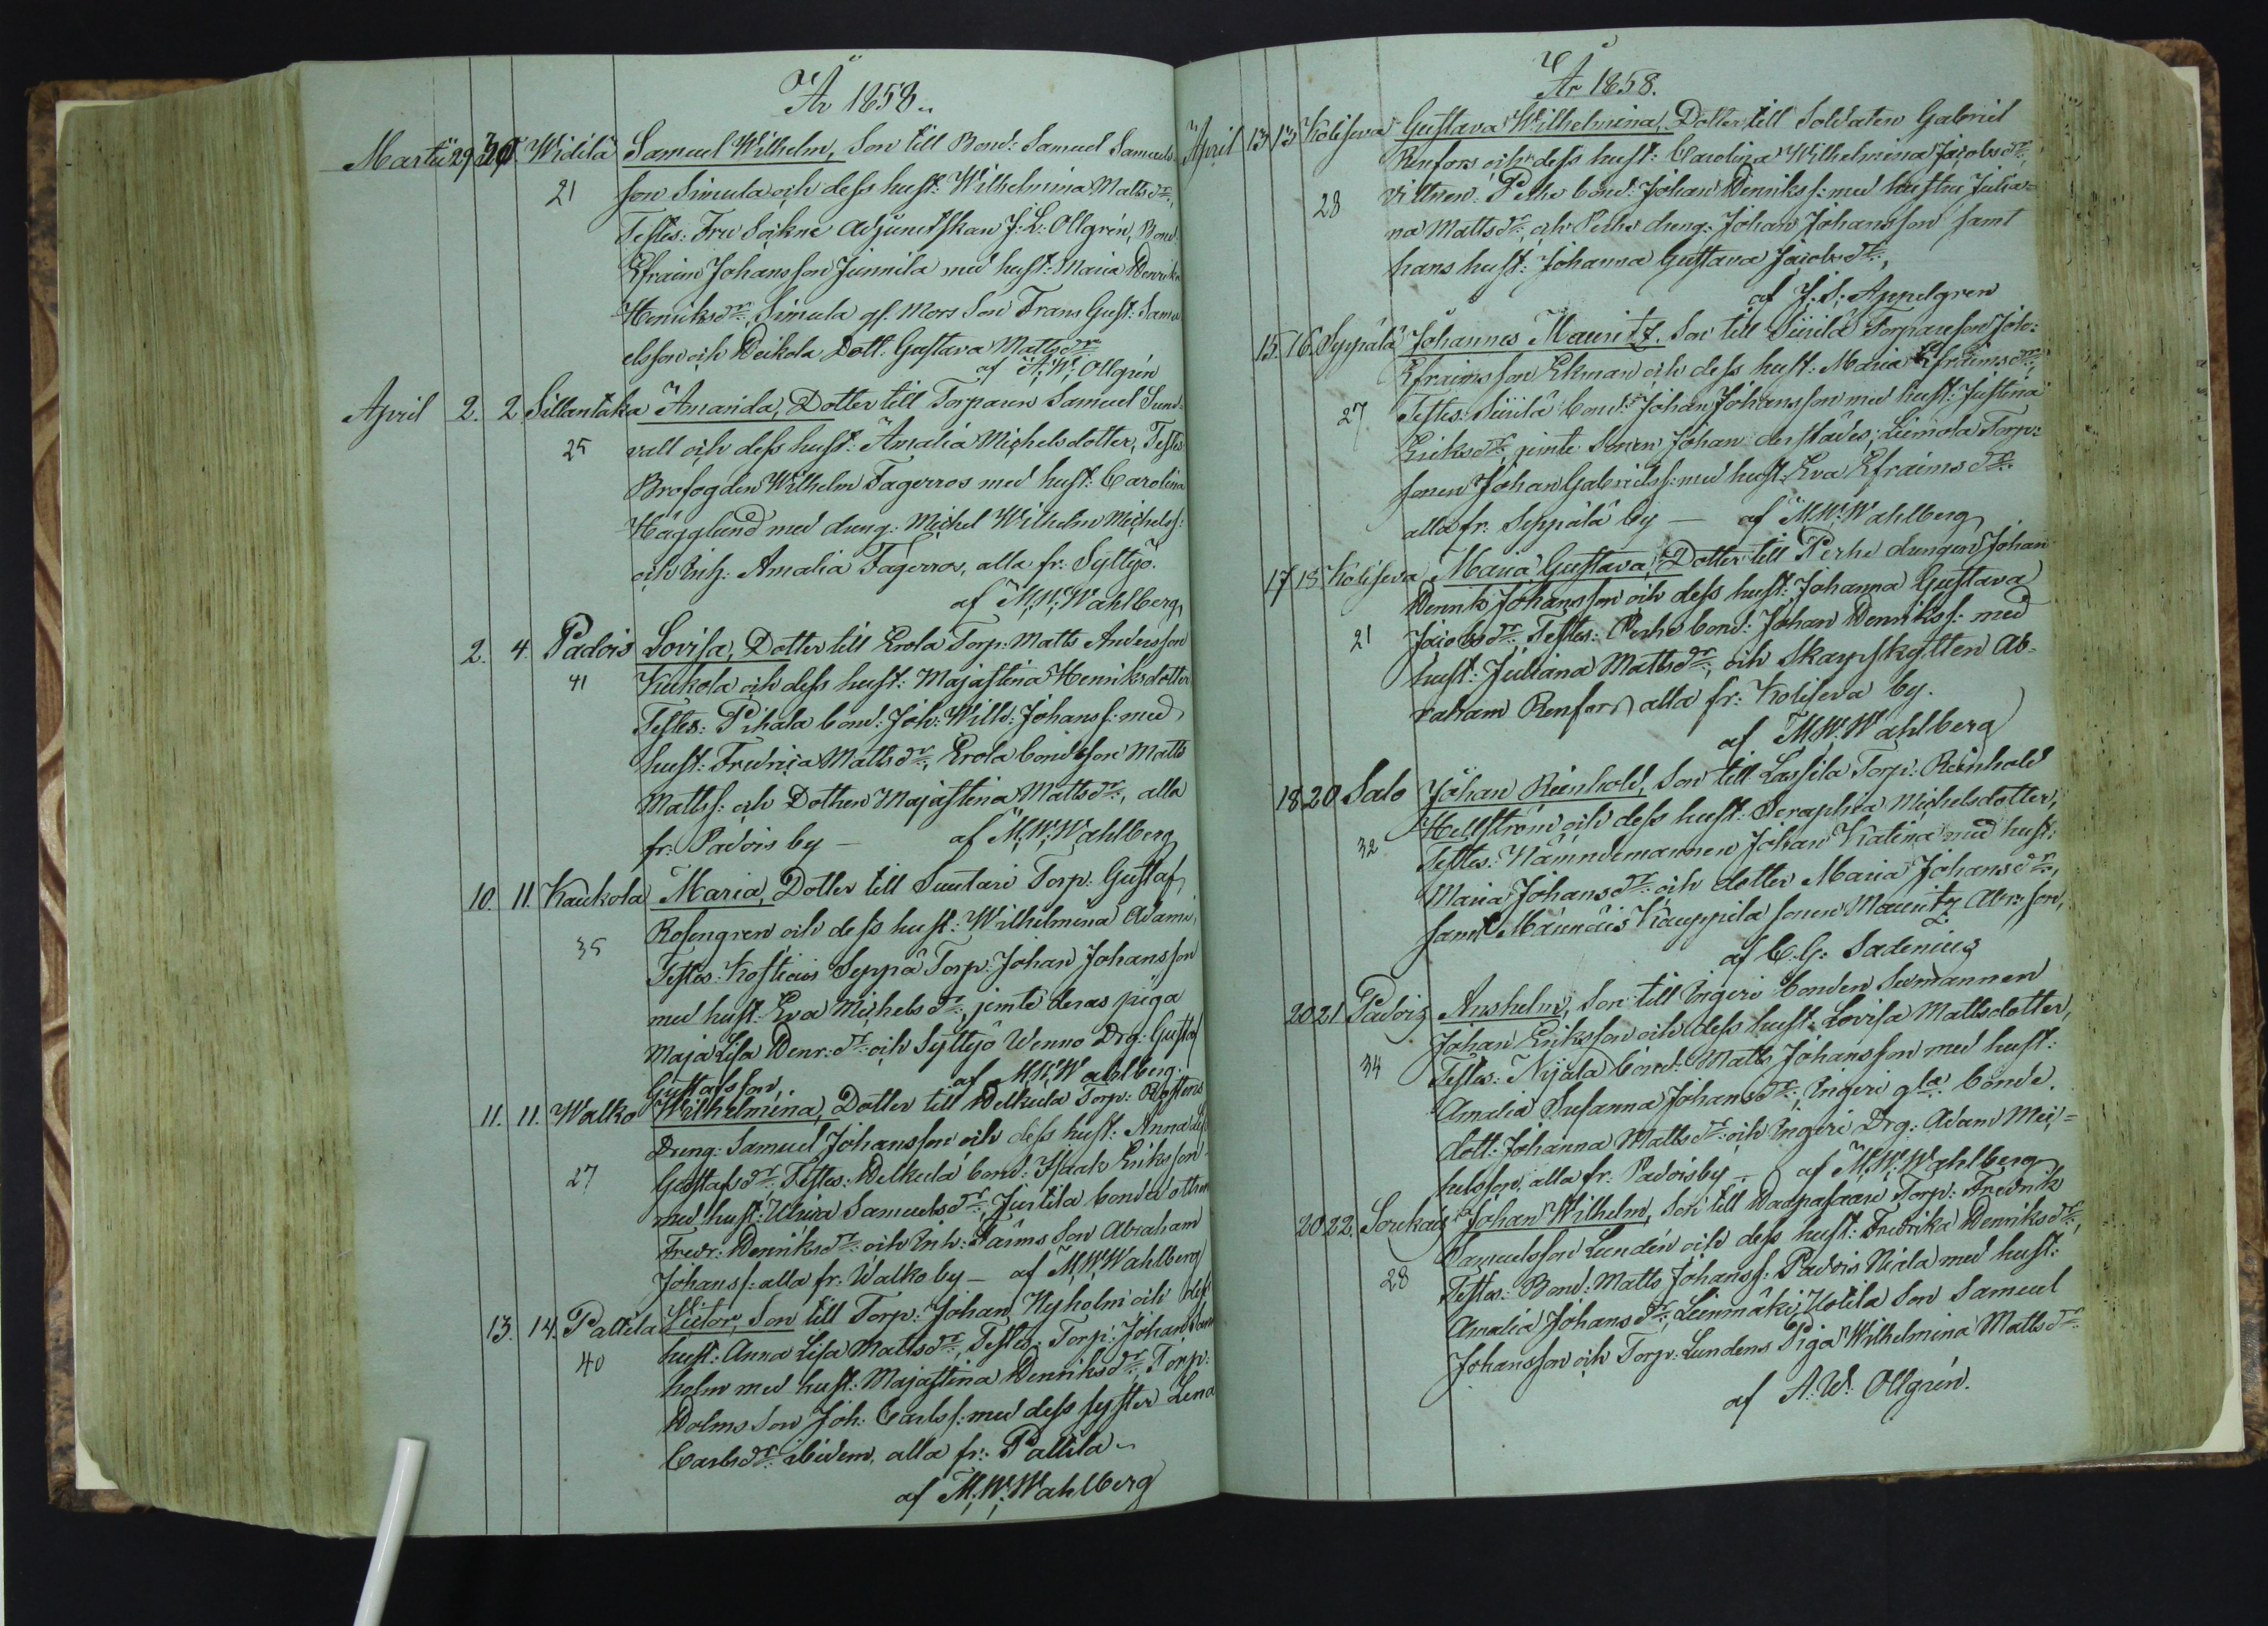 År 1858.
Martii 29 30 Widilä Samuel Wilhelm, Son till Bond: Samuel Samuels-
21 son Simula och dess hust: Wilhelmina Mattsdr:,
Testes: Fru Sockne Adjunctskan J: L: Ollgrén, Bond.
Efraim Johansson Junnila med hust: Maria Henriks
Henriksdr:, Simula gl. Mors Son Frans Gust: Samu
elsson och Heikola Dott. Gustava Mattsdr:
af A: W: Ollgrén
April 2. 2 Sillantaka Amanda, Dotter till Torparen Samuel Sund-
25 vall och dess hust: Amalia Michelsdotter, Testes
Brofogden Wilhelm Fagerros med hust: Carolina
Hägglund med dreng. Michel Wilhelm Michelss:
och Inh: Amalia Fagerros, alla fr: Syttyö.
af M: W: Wahlberg
2. 4. Padois Lovisa, Dotter till Erola Torp: Matts Andersson
41 Kukola och dess hust: Majastina Henriksdotter
Testes: Pihala bond: Joh: Willh: Johanss: med
hust: Fredrica Mattsdr:, Erola bondeson Matts
Mattss: och Dottren Majastina Mattsdr:, alla
fr: Padois by — af M: W: Wahlberg
10. 11. Kaukola Maria, Dotter till Suutari Torp: Gustaf
35 Rosengren och dess hust: Wilhelmina Adamsdr,
Testes: Kostiais Seppä Torp: Johan Johansson
med hust: Eva Michelsdr:, jemte deras piga
Maja Lisa Henr:dr: och Syttyö Uenno Drg: Gustaf
Gustafsson, af M: W: Wahlberg.
11. 11. Walko Wilhelmina, Dotter till Helkula Torp:
Dreng: Samuel Johansson och dess hust: Anna Lisa
27 Gustafsdr: Testes: Helkula bond: Isaak Eriksson
med hust: Ulrica Samuelsdr:, Juntila bonddottren
Fredr: Henriksdr: och Inh: Särms Son Abraham
Johanss: alla fr: Walko by — af M: W: Wahlberg
13. 14. Pättilä Victor, Son till Torp: Johan Nyholm och dess
40 hust: Anna Lisa Mattsdr:, Testes: Torp: Johan
holm med hust: Majastina Henriksdr:, Torp:
Holms Son Joh: Carlss: med dess syster Lena
Carlsdr: ibidem, alla fr: Pättilä.
af M: W: Wahlberg
År 1858.
April 13 13 Koliseva Gustava Wilhelmina, Dotter till Soldaten Gabriel
Renfors och dess hust: Carolina Wilhelmina Jacobsdr:,
28 Vittnen: Perhe bond: Johan Henrikss: med hustru Julia-
na Mattsdr:, och Perhe dreng: Johan Johansson samt
hans hust: Johanna Gustava Jacobsdr:,
af J: S: Appelgren
15. 16. Seppälä Johannes Mauritz, Son till Siirilä Torparsson Joh:
Efraimsson Ekman och dess hust: Maria Efraimsdr:,
27 Testes: Siirilä bond: Johan Johansson med hust: Justina
Eriksdr:, jemte Sonen Johan derstädes; Liimola Torp:
sonen Johan Gabrielss: med hust: Eva Efraimsdr:
alla fr: Seppälä by — af M: W: Wahlberg
17 18 Kolisewa Maria Gustava, Dotter till Perhe drengen Johan
Henrik Johansson och dess hust: Johanna Gustava
21 Jacobsdr: Testes: Perhe bond: Johan Henrikss: med
hust: Juliana Mattsdr:, och Skarpskytten Ab-
raham Renfors alla fr: Kolisewa by.
af M. W. Wahlberg
18 20 Salo Johan Reinhold, Son till Lassila Torp: Reinhold
Hellström och dess hust: Seraphia Michelsdotter,
32 Testes: Nämndemannen Johan Katina med hust:
Maria Johansdr: och dotter Maria Johansdr:,
samt Mäunäis Kauppila sonen Mauritz Abr:son,
af C. G. Sadenius
20 21 Padois Anshelm, Son till Ingeri bonden Sexmannen
Johan Eriksson och dess hust: Lovisa Mattsdotter,
34 Testes: Nijala bond: Matts Johansson med hust:
Amalia Susanna Johansdr:, Ingeri gla: bonde.
dott: Johanna Mattsdr: och Ingeri Drg: Adam Mic-
helsson, alla fr: Padois by. af M: W: Wahlberg
20 22. Soukais Johan Wilhelm, Son till Haapasaari Torp: Fredrik
Samuelsson Lundén och dess hust: Fredrika Henriksdr:,
28 Testes: Bond: Matts Johanss: Padois Niala med hust:
Amalia Johansdr:, Leinmäki Uotila Son Samuel
Johansson och Torp: Lundens Piga Wilhelmina Mattsdr:
af A: W: Ollgrén.